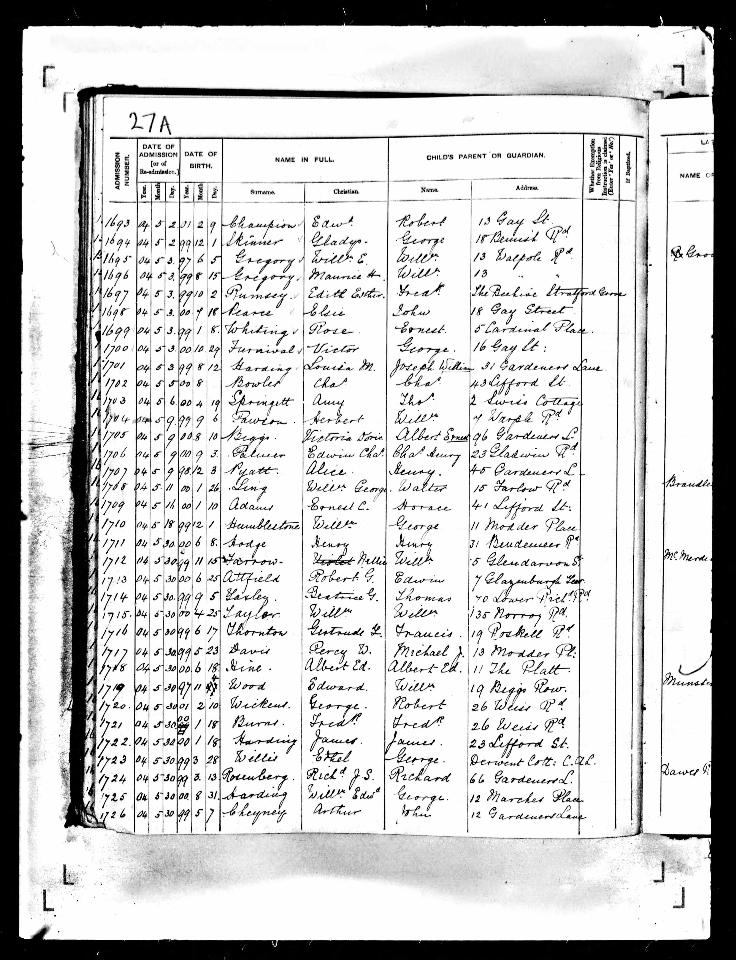 27A
ADMISSION NUMBER. DATE OF ADMISSION (or of Re-admission.) DATE OF BIRTH. NAME IN FULL. CHILD'S PARENT OR GUARDIAN. Whether Exemption from Religious Instruction is claimed (Enter "Yes" or "No.") If Baptized. LA
Year. Month Day. Year. Month Day. Surname. Christian. Name. Address. NAME OF
1693 04 5 2 01 2 9 Champion Edwd. Robert 13 Gay St.
1694 04 5 2 99 12 1 Skinner Gladys. George 18 Bemish Rd
1695 04 5 3. 97 6 5 Gregory Willm E. Willm 13 Walpole Rd
1696 04 5 3. 99 8 15 Gregory Maurice H. Willm 13 " "
1697 04 5 3. 99 10 2 Rumsey Edith Esther. Fredk. The Beehive Stratford Grove
1698 04 5 3. 00 7 18 Pearce Elsie John 18 Gay Street
1699 04 5 3. 99 1 8. Whiting Rose Ernest. 5 Cardinal Place.
1700 04 5 3 00 10 29 Furnival Victor George. 16 Gay St:
1701 04 5 3 99 8 12 Harding Louisa M. Joseph William 31 Gardeners Lane
1702 04 5 5 00 8 Bowler Chas Chas 43 Lifford St.
1703 04 5 6. 00 4 19 Springett Amy Thos 2 Swiss Cottage
1704 04 5 9. 99 9 6 Fawson Herbert Willm 7 Warple Rd
1705 04 5 9 00 8 10 Biggs. Victoria Doris Albert Ernest 96 Gardeners L.
1706 04 5 9 00 9 3. Palmer Edwin Chas. Chas Henry 23 Gladwin Rd
1707 04 5 9 98 12 3 Pyatt. Alice. Henry. 45 Gardeners L
1708 04 5 11 00 1 26. Ling Willm George. Walter 15 Farlow Rd Brandle
1709 04 5 16 00 1 10 Adams Ernest C. Horace 41 Lifford St:
1710 04 5 18 99 12 1 Humblestone Willm George 11 Modder Place
1711 04 5 30 00 6 8. Hodge Henry Henry 31 Bendemeer Rd
1712 04 5 30 99 11 15 Farrow. Violet Nellie Willm 5 Glendarvon St
1713 04 5 30 00 6 25 Attfield Robert G. Edwin 7 Glazenburgh
1714 04 5 30 99 9 5 Beatrice G. Thomas 70 Lower Richd Rd
1715. 04 5 30 00 4 25 Taylor Willm Willm 135 Norroy Rd.
1716 04 5 30 99 6 17 Thornton Gertrude L. Francis. 19 Roskell Rd
1717 04 5 30 99 5 23 Davis Percy D. Michael J. 13 Modder Pl.
1718 04 5 30 00 6 18 Hine. Albert Ed. Albert Ed. 11 The Platt.
1719 04 5 30 97 11 Wood Edward. Willm 19 Biggs Row. Munster
1720. 04 5 30 01 2 10 Wickens George. Robert 26 Weiss Rd
1721 04 5 30 00 1 18 Burns. Fredk. Fredk. 26 Weiss Rd.
1722. 04 5 30 00 1 18 Harding James. James. 23 Lifford St.
1723 04 5 30 99 3 28 Willis Ethel George. Derwent Cott:
1724 04 5 30 99 3. 13 Rosenberg. Richd J. S. Richard 66 Gardeners L. Dawes
1725 04 5 30 00. 8 31. Harding Willm Edwd George. 12 Marches Place
1726 04 5 30 99 5 7 Cheyney Arthur John 12 Gardeners Lane